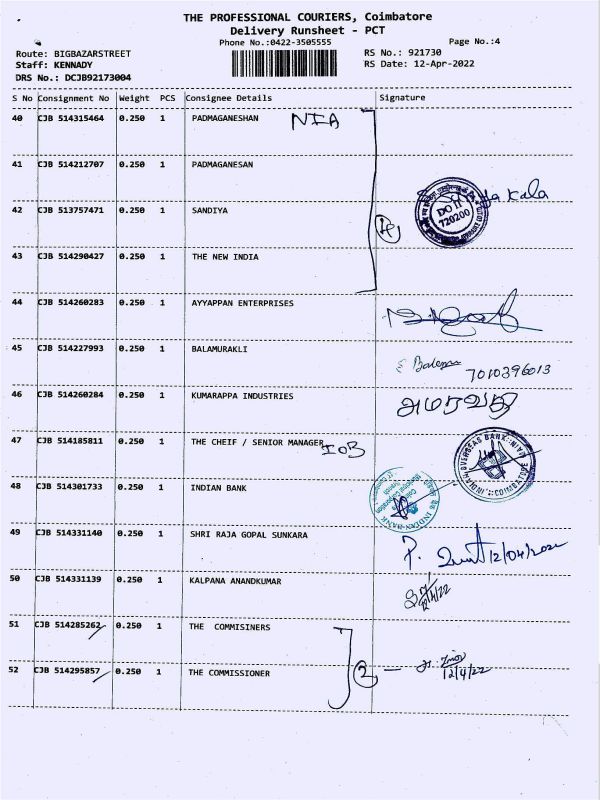 THE PROFESSIONAL COURIERS, Coimbatore
Delivery Runsheet - PCT
Phone No.:0422-3505555
Page No.:4
Route: BIGBAZARSTREET
RS No.: 921730
Staff: KENNADY
RS Date: 12-Apr-2022
DRS No.: DCJB92173004
S No Consignment No Weight PCS Consignee Details Signature
40 CJB 514315464 0.250 1 PADMAGANESHAN NIA
41 CJB 514212707 0.250 1 PADMAGANESAN
42 CJB 513757471 0.250 1 SANDIYA
DO II
720200
kala
4
43 CJB 514290427 0.250 1 THE NEW INDIA
44 CJB 514260283 0.250 1 AYYAPPAN ENTERPRISES
45 CJB 514227993 0.250 1 BALAMURAKLI
7010396013
46 CJB 514260284 0.250 1 KUMARAPPA INDUSTRIES அமரவதி
47 CJB 514185811 0.250 1 THE CHEIF / SENIOR MANAGER IOB
INDIAN OVERSEAS BANK
48 CJB 514301733 0.250 1 INDIAN BANK
INDIAN BANK
49 CJB 514331140 0.250 1 SHRI RAJA GOPAL SUNKARA P. 12/04/2022
50 CJB 514331139 0.250 1 KALPANA ANANDKUMAR
12/4/22
51 CJB 514285262 0.250 1 THE COMMISINERS
2
12/4/22
52 CJB 514295857 0.250 1 THE COMMISSIONER